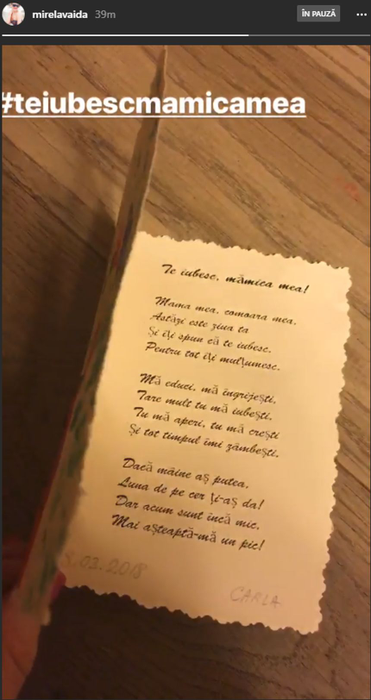 mirelavaida 39m
ÎN PAUZĂ
#teiubescmamicamea
Te iubesc, mămica mea!
Mama mea, comoara mea,
Astăzi este ziua ta
Și îți spun că te iubesc,
Pentru tot îți mulțumesc.
Mă educi, mă îngrijești,
Tare mult tu mă iubești,
Tu mă aperi, tu mă crești
Și tot timpul îmi zâmbești.
Dacă mâine aș putea,
Luna de pe cer ți-aș da!
Dar acum sunt încă mic,
Mai așteaptă-mă un pic!
8.03.2018
CARLA